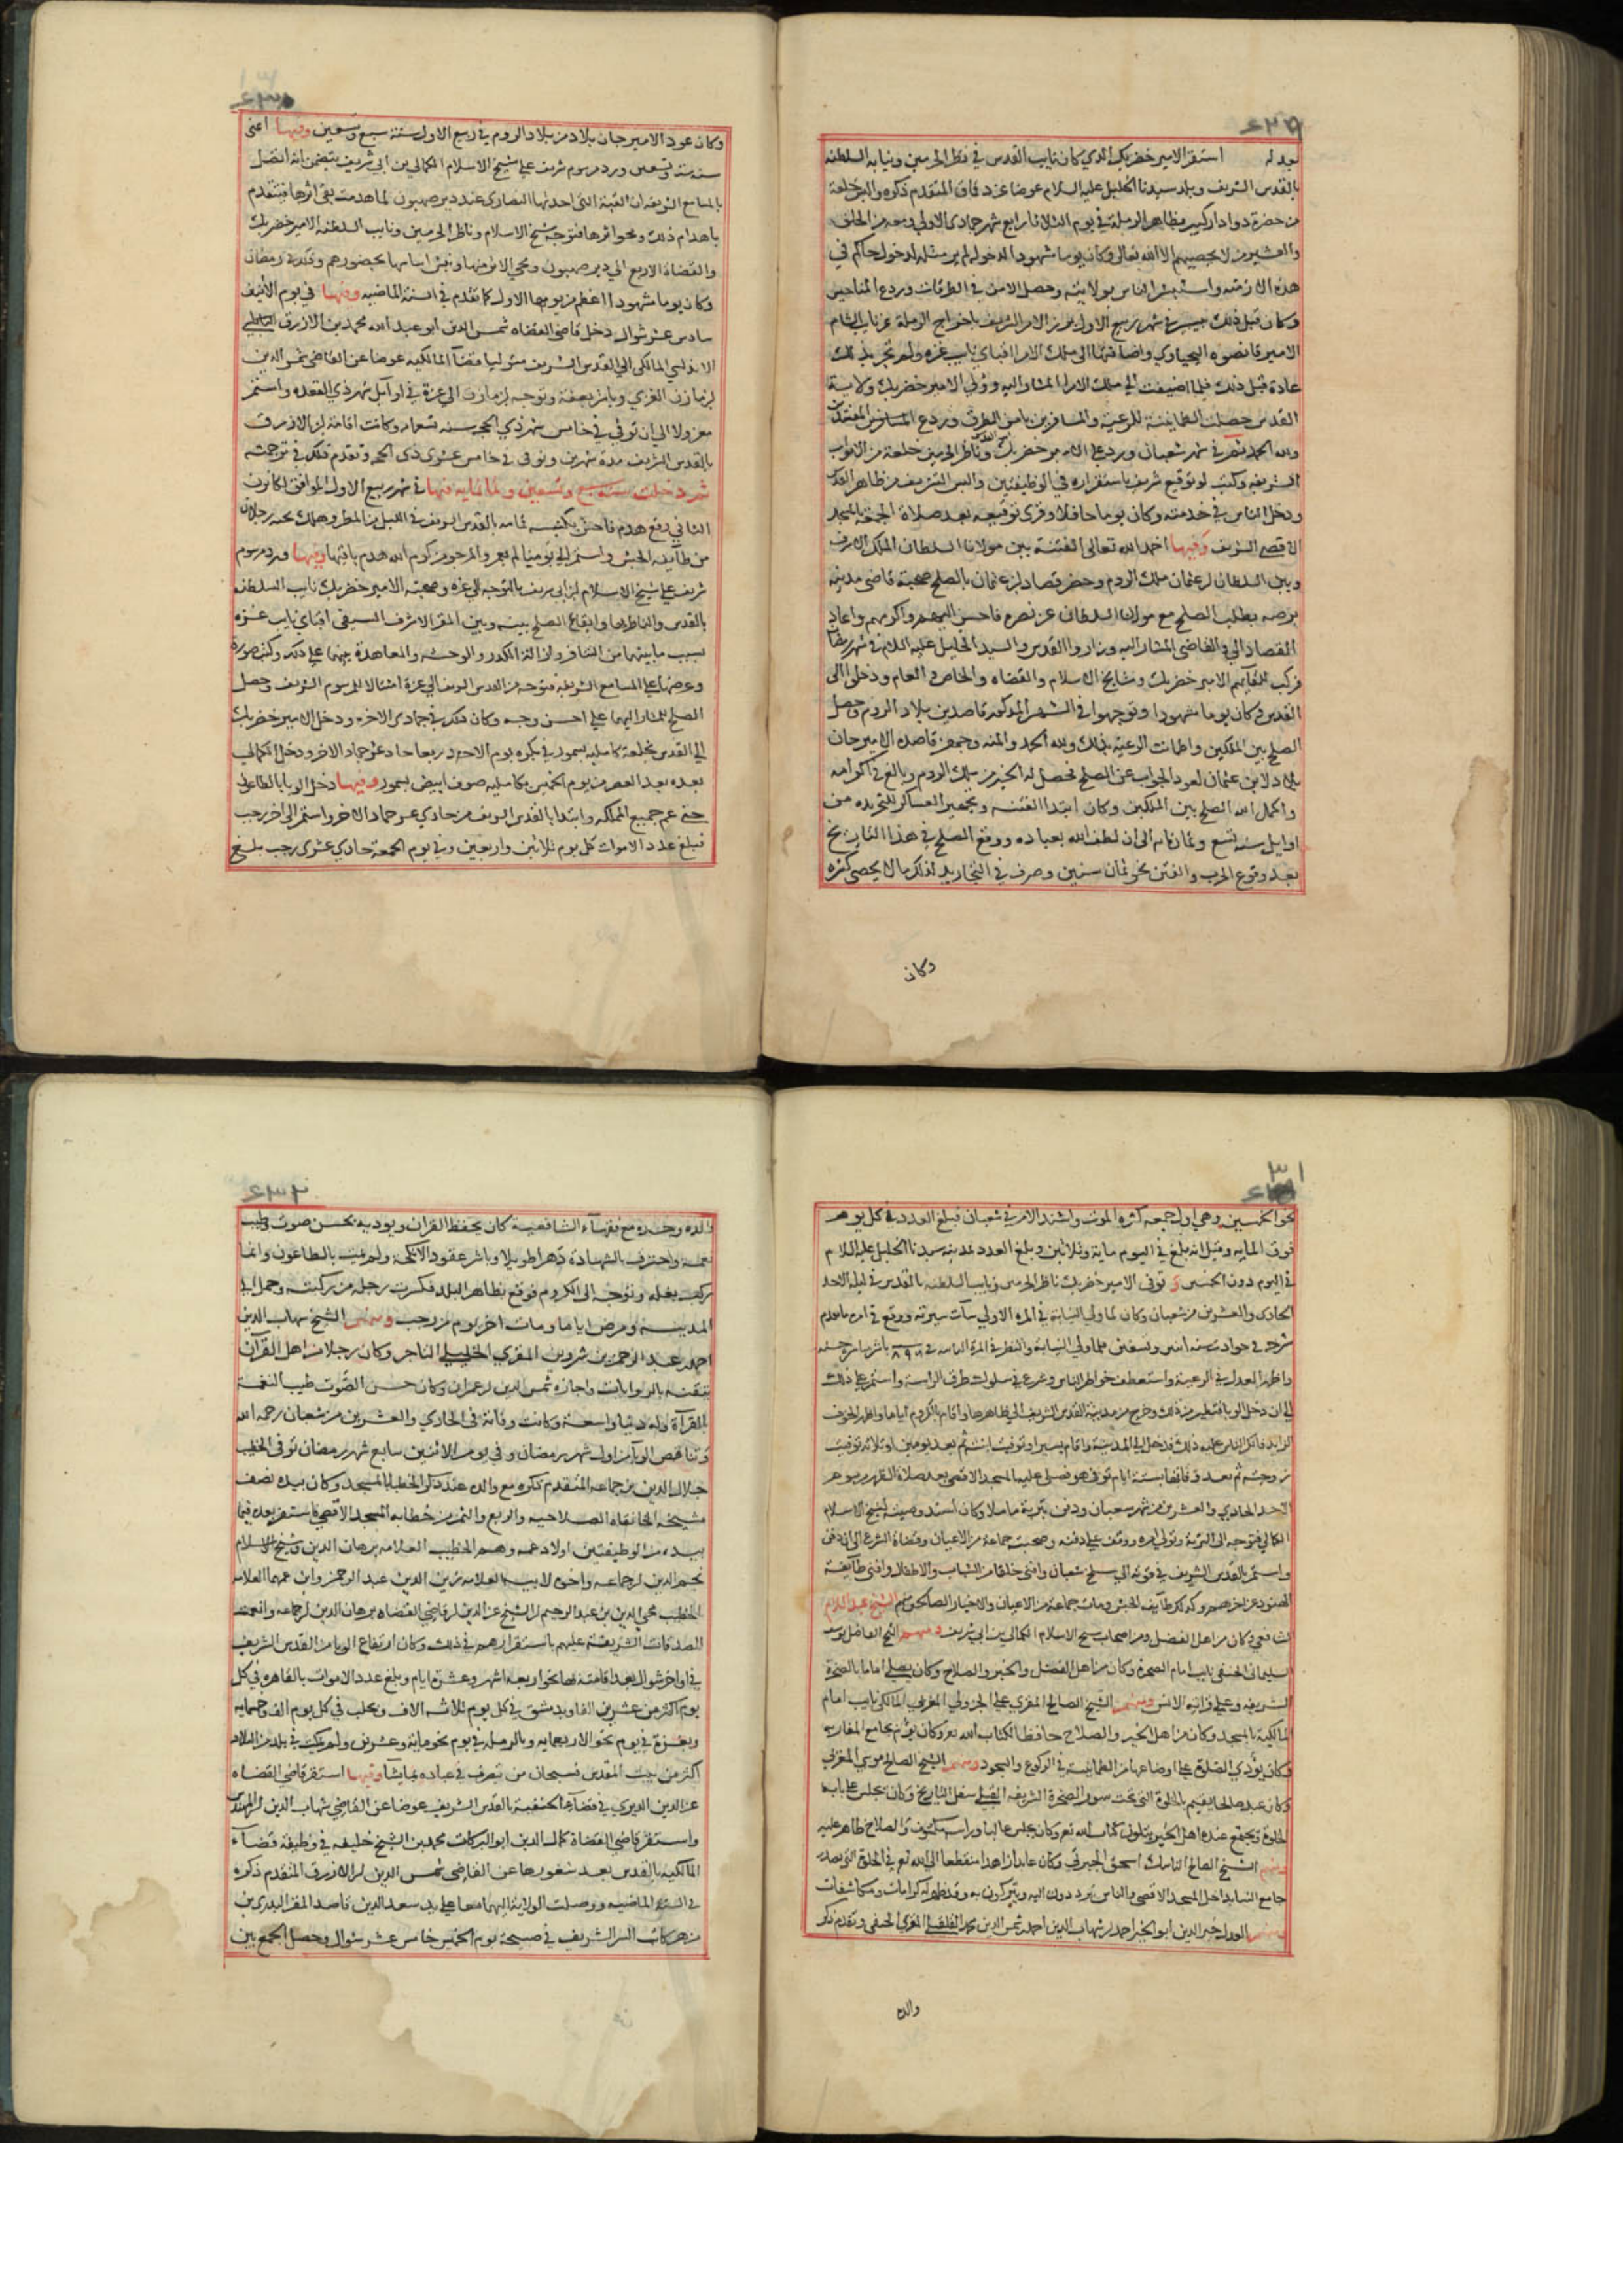 بعد له استقر الامير خضر بك الذي كان نايب القدس في نظر الحرمين ونيابه السلطنه
بالقدس الشريف وبلد سيدنا الخليل عليه السلام عوضا عن دقاق المتقدم ذكره والبس خلعة
من حضرة دوادار كبير بظاهر الرملة في يوم الثلاثا رابع شهر جمادى الاولى ومعه من الخلق
والعشير من لا يحصيهم الا الله تعالى وكان يوما مشهودا لدخوله لم ير مثله لدخول حاكم في
هذه الازمنه واستبشر الناس بولايته وحصل الامن في الطرقات وردع المناحيس
وكان قبل ذلك بيسير في شهر ربيع الاول برز الامر الشريف باخراج الرملة عن نايب الشام
الامير قانصوه اليحياوي واضافتها الى ملك الامرا اقباي نايب غزه ولم تجر بذلك
عادة قبل ذلك فلما اضيفت الى ملك الامرا المشار اليه وولي الامير خضر بك ولاية
القدس حصلت الطمانينة للرعية والمسافرين بامن الطرق وردع المفسدين
ولله الحمد ثم في شهر شعبان ورد على الامير خضر بك وناظر الحرمين خلعة من الابواب
الشريفه وكتب له توقيع شريف باستقراره في الوظيفتين والبس التشريف من ظاهر القدس
ودخل الناس في خدمته وكان يوما حافلا وقرى توقيعه بعد صلاة الجمعة بالمسجد
الاقصى الشريف وفيها اخمد الله تعالى الفتنة بين مولانا السلطان الملك الاشرف
وبين السلطان ابن عثمان ملك الروم وحضر قصاد ابن عثمان بالصلح صحبة قاضي مدينة
برصه بطلب الصلح مع مولانا السلطان عز نصره فاحسن اليهم واكرمهم واعاد
القصاد الى القاضي المشار اليه وزاروا القدس والسيد الخليل عليه السلام في شهر رمضان
فركب للقايهم الامير خضر بك ومشايخ الاسلام والقضاه والخاص والعام ودخلوا الى
القدس وكان يوما مشهودا وتوجهوا في الشهر المذكور قاصدين بلاد الروم وحصل
الصلح بين الملكين واطمانت الرعية بذلك ولله الحمد والمنه وجهز قاصده الامير جان
بلاد لابن عثمان لعود الجواب عن الصلح فحصل له الخير من ملك الروم وبالغ في اكرامه
واكمل الله الصلح بين الملكين وكان ابتدا الفتنه وتجهيز العساكر للتجريده من
اوايل سنه تسع وثمانمايه الى ان لطف الله بعباده ووقع الصلح في هذا التاريخ
بعد وقوع الحرب والفتن نحو ثمان سنين وصرف في التجاريد لذلك ما لا يحصى كثره
وكان
وكان عود الامير جان بلاد من بلاد الروم في ربيع الاول سنة سبع وتسعين وفيها اعني
سنة ست وتسعين ورد مرسوم شريف على شيخ الاسلام الكمالي بن ابي شريف يتضمن انه اتصل
بالمسامع الشريفه ان القبة التي احدثها النصارى عند دير صهيون لما هدمت بقي اثرها فتتقدم
باهدام ذلك ومحو اثرها فتوجه شيخ الاسلام وناظر الحرمين ونايب السلطنه الامير خضر بك
والقضاة الاربع الى دير صهيون ومحي الاثر منها ونبش اساسها بحضورهم وذلك في رمضان
وكان يوما مشهودا اعظم من يومها الاول كما تقدم في السنة الماضيه وفيها في يوم الاثنين
سادس عشر شوال دخل قاضي القضاه شمس الدين ابو عبد الله محمد بن الازرق
الاندلسي المالكي الى القدس الشريف متوليا قضآ المالكيه عوضا عن القاضي شمس الدين
ابن مازن الغزي وباشر بعفة وتوجه ابن مازن الى غزة في اوايل شهر ذي القعده واستمر
معزولا الى ان توفي في خامس شهر ذي الحجه سنه تسعمايه وكانت اقامة ابن الازرق
بالقدس الشريف مدة شهرين وتوفي في خامس عشري ذي الحجه وتقدم ذلك في ترجمته
ثم دخلت سنة سبع وتسعين وثمانمايه فيها في شهر ربيع الاول الموافق لكانون
الثاني وقع هدم فاحش بكنيسه قمامه بالقدس الشريف في الليل من المطر وهلك تحته رجلان
من طايفة الحبش واستمر الى يومنا لم يعمر والمرجو من كرم الله هدم باقيها وفيها ورد مرسوم
شريف على شيخ الاسلام ابن ابي شريف بالتوجه الى غزه وصحبته الامير خضر بك نايب السلطنه
بالقدس والناظر بها وايقاع الصلح بينه وبين المقر الاشرف السيفي اقباي نايب غزه
بسبب ما بينهما من التنافر وازالة الكدر والوحشه والمعاهدة بينهما على ذلك وكتب صورة
وعرضها على المسامع الشريفه فتوجه من القدس الشريف الى غزة امتثالا للمرسوم الشريف وحصل
الصلح للمشار اليهما على احسن وجه وكان ذلك في جمادى الاخره ودخل الامير خضر بك
الى القدس بخلعة كامليه بسمور في بكره يوم الاحد رابع حاد عشر جماد الاخر ودخل الكمالي
بعده بعد العصر من يوم الخميس بكامليه صوف ابيض بسمور وفيها دخل الوبا بالطاعون
حتى عم جميع المملكه وابتدا بالقدس الشريف من حادي عشر جماد الاخر واستمر الى اخر رجب
فبلغ عدد الاموات كل يوم ثلاثين واربعين وفي يوم الجمعة حادي عشري رجب بلغ
نحو الخمسين وهي اول جمعه كثره الموت واشتد الامر في شعبان فبلغ العدد في كل يوم
فوق المايه وقيل انه بلغ في اليوم ماية وثلاثين وبلغ العدد بمدينه سيدنا الخليل عليه السلام
في اليوم دون الخمسين وتوفي الامير خضر بك ناظر الحرمين ونايب السلطنه بالقدس في ليلة الاحد
الحادي والعشرين من شعبان وكان لما ولي النيابة في المره الاولى سآت سيرته ووقع في امره ما تقدم
شرحه في حوادث سنه اثنين وتسعين فلما ولي النيابة والنظر في المرة الثانيه في سنة ٨٩٦ باشر مباشرة حسنه
واظهر العدل في الرعية واستعطف خواطر الناس وشرع في سلوك طرق الرياسة واستمر على ذلك
الى ان دخل الوبا فتطير من ذلك وخرج من مدينة القدس الشريف الى ظاهرها واقام بالكروم اياما واظهر الخوف
الزايد فانكر الناس عليه ذلك فدخل الى المدينة واقام يسيرا وتوفيت ابنته ثم بعد يومين او ثلاثه توفيت
زوجته ثم بعد وفاتها بستة ايام توفي هو فصلي عليه بالمسجد الاقصى بعد صلاة الظهر من يوم
الاحد الحادي والعشرين من شهر شعبان ودفن بتربة ماملا وكان اسند وصيته لشيخ الاسلام
الكمالي فتوجه الى التربة وتولى امره ووقف على دفنه وصحبته جماعة من الاعيان وقضاة الشرع الى ان دفن
واستمر بالقدس الشريف في قوته الى سلخ شعبان وافنى خلقا من الشباب والاطفال وافنى طآيفة
الهنود عن اخرهم وكذلك طآيفة الحبش ومات جماعة من الاعيان والاخيار الصالحين منهم الشيخ عبد السلام
الشافعي وكان من اهل الفضل ومن اصحاب شيخ الاسلام الكمالي بن ابي شريف ومنهم الشيخ الفاضل يوسف
السليماني الحنفي نايب امام الصخرة وكان من اهل الفضل والخير والصلاح وكان يصلي اماما بالصخرة
الشريفه وعلى قراته الانس ومنهم الشيخ الصالح المقري علي الجزولي المغربي المالكي نايب امام
المالكية بالمسجد وكان من اهل الخير والصلاح حافظا لكتاب الله تعر وكان يؤم بجامع المغاربه
وكان يؤدي الصلوة على اوضاعها من الطمانينة في الركوع والسجود ومنهم الشيخ الصالح موسى المغربي
وكان عبد صالحا يقيم بالخلوة التي تحت سور الصخرة الشريفه القبلي سفل التاريخ وكان يجلس على باب
الخلوة ويجتمع عنده اهل الخير يتلون كتاب الله تعر وكان يجلس غالبا وراسه مكشوف والصلاح ظاهر عليه
ومنهم الشيخ الصالح الناسك اسحق الجبرتي وكان عابدا زاهدا منقطعا الى الله تعر في الخلوة التي بصدر
جامع النسا بداخل المسجد الاقصى والناس يترددون اليه ويتبركون به وقد ظهر له كرامات ومكاشفات
ومنهم العدل خير الدين ابو الخير احمد ابن شهاب الدين احمد بن شمس الدين محمد القلقيلي المقري الحنفي وتقدم ذكر
والده
والده وجده مع فقهآء الشافعيه كان يحفظ القران ويوديه بحسن صوت وطيب
نغمة واحترف بالشهادة دهرا طويلا وباشر عقود الانكحة ولم يمت بالطاعون وانما
ركب بغله وتوجه الى الكروم فوقع بظاهر البلد فكسرت رجله من ركبته وحمل الى
المدينة ومرض اياما ومات اخر يوم من رجب ومنهم الشيخ شهاب الدين
احمد عبد الرحمن بن شروين المقري الخليلي التاجر وكان رجلا من اهل القرآن
يتقنه بالروايات واجازه شمس الدين ابن عمران وكان حسن الصوت طيب النغمة
بالقرآة وله دنيا واسعة وكانت وفاته في الحادي والعشرين من شعبان رحمه الله
وتناقص الوبا من اول شهر رمضان وفي يوم الاثنين سابع شهر رمضان توفي الخطيب
جلال الدين بن جماعه المتقدم ذكره مع والده عند ذكر الخطبا بالمسجد وكان بيده نصف
مشيخه الخانقاه الصلاحيه والربع والثمن من خطابه المسجد الاقصى فاستقر بعده فيما
بيده من الوظيفتين اولاد عمه وهم الخطيب العلامه برهان الدين وشيخ الاسلام
نجم الدين ابن جماعه واخوه لابيه العلامه زين الدين عبد الرحمن وابن عمهما العلامه
الخطيب محي الدين بن عبد الرحيم ابن الشيخ عز الدين ابن قاضي القضاه برهان الدين ابن جماعه وانعمت
الصدقات الشريفة عليهم باستقرارهم في ذلك وكان ارتفاع الوبا من القدس الشريف
في اواخر شوال بعد اقامته بها نحوا ربعه اشهر وعشرة ايام وبلغ عدد الاموات بالقاهره في كل
يوم اكثر من عشرين الفا وبدمشق في كل يوم ثلاثه الاف وبحلب في كل يوم الف وخمسمايه
وبغزة في يوم نحو الاربعمايه وبالرمله في يوم نحو مائة وعشرين ولم يكن في بلد من البلاد
اكثر من بيت المقدس فسبحان من تصرف في عباده بما يشآ وفيها استقر قاضي القضاه
عز الدين الديري في قضآء الحنفية بالقدس الشريف عوضا عن القاضي شهاب الدين ابن المهندس
واستقر قاضي القضاة كمال الدين ابو البركات محمد بن الشيخ خليفه في وظيفة قضآء
المالكيه بالقدس بعد شغورها عن القاضي شمس الدين ابن الازرق المتقدم ذكره
في السنه الماضيه ووصلت الولاية اليهما معا على يد سعد الدين قاصد المقر البدري بن
مزهر كاتب السر الشريف في صبيحة يوم الخميس خامس عشر شوال وحصل الجمع بين